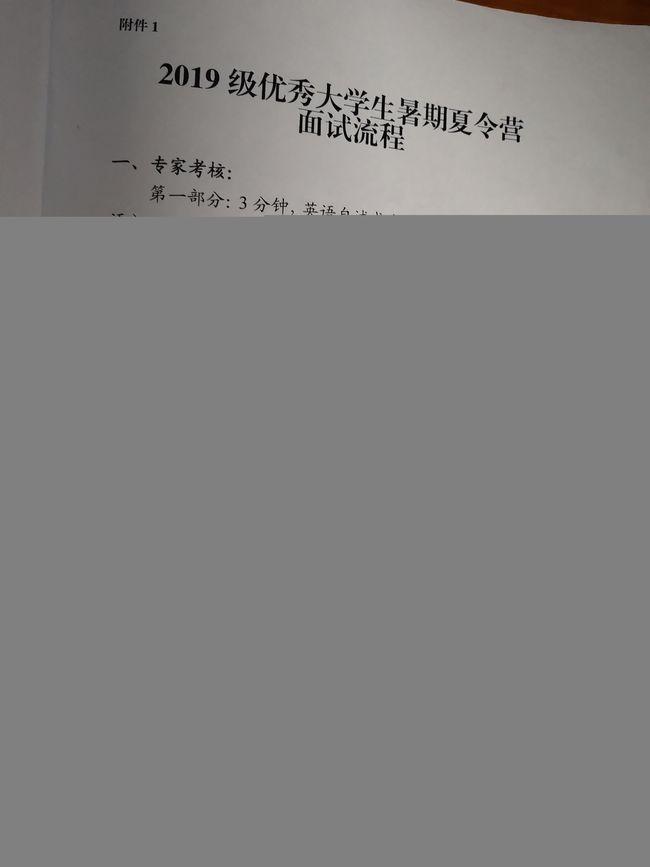 附件 1
2019 级优秀大学生暑期夏令营
面试流程
一、专家考核：
第一部分：3 分钟，英语自述